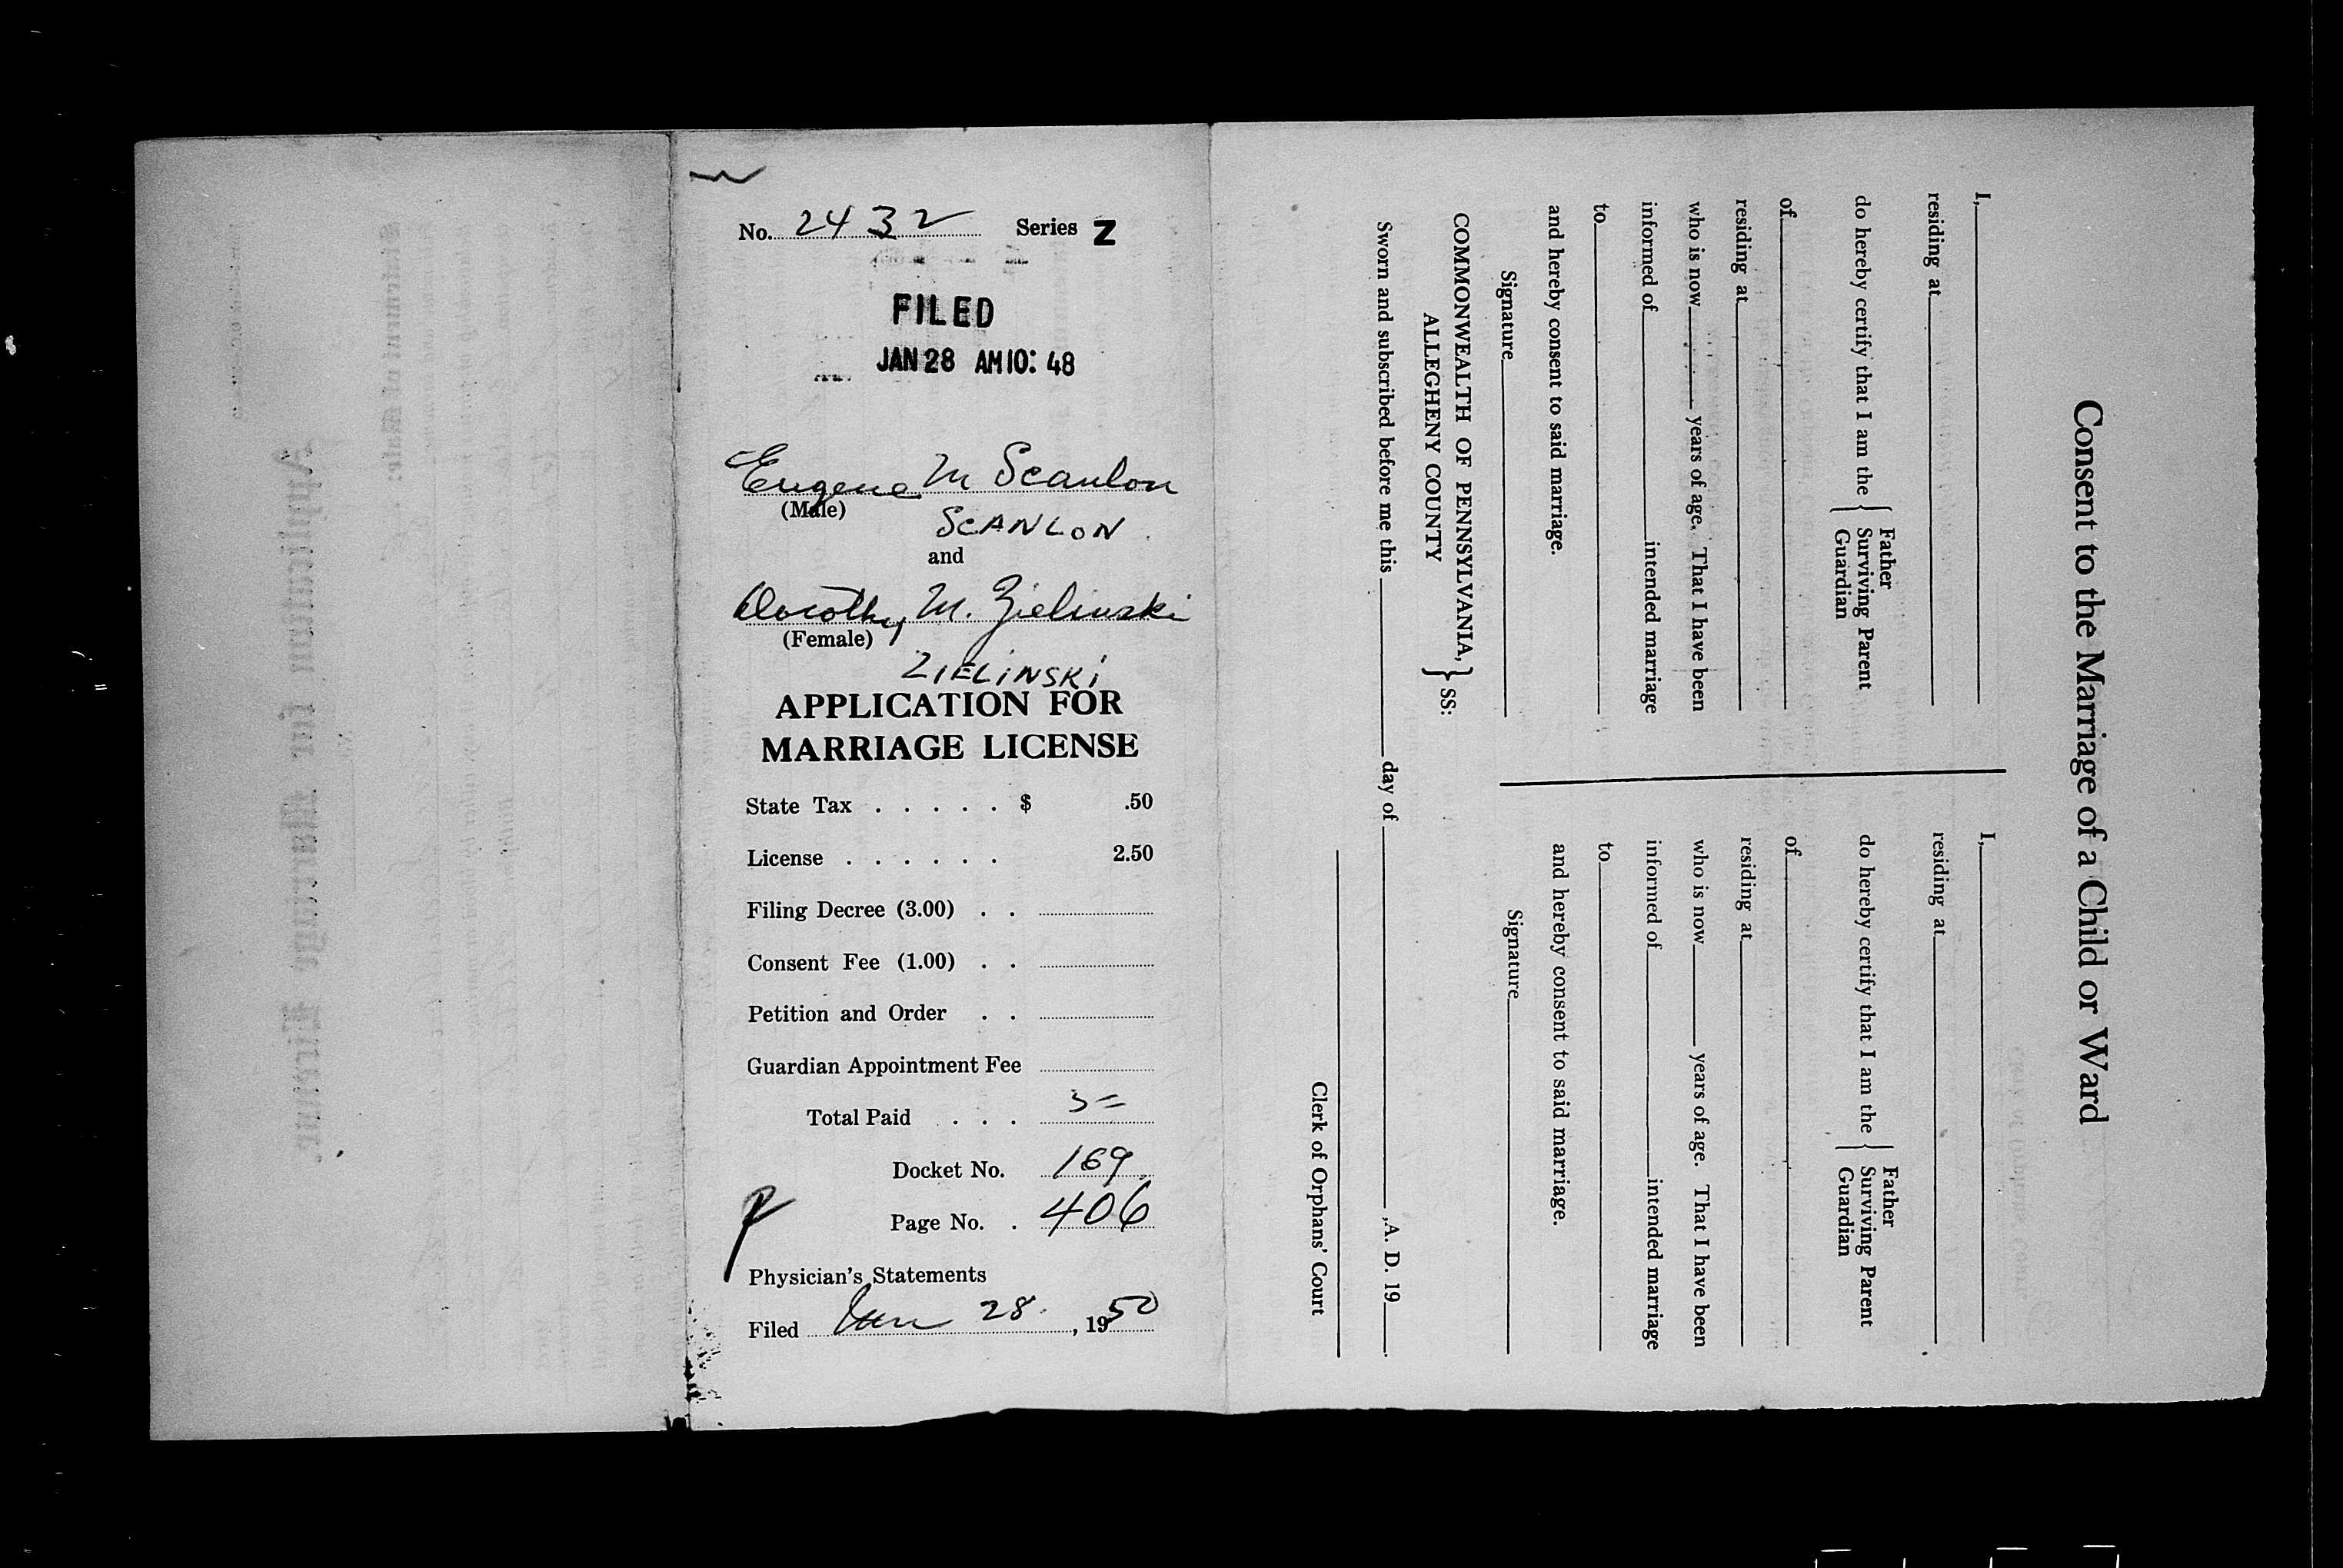 No. 2432 Series Z
FILED
JAN 28 AM 10: 48
Eugene M Scanlon
(Male)
SCANLON
and
Dorothy M. Zielinski
(Female)
ZIELINSKI
APPLICATION FOR
MARRIAGE LICENSE
State Tax . . . . . $ .50
License . . . . . . 2.50
Filing Decree (3.00) . .
Consent Fee (1.00) . .
Petition and Order . .
Guardian Appointment Fee
Total Paid . . . 3=
Docket No. 169
Page No. . 406
Physician's Statements
Filed Jan 28. , 1950
Consent to the Marriage of a Child or Ward
I,
residing at
do hereby certify that I am the { Father
Surviving Parent
Guardian
of
residing at
who is now years of age. That I have been
informed of intended marriage
to
and hereby consent to said marriage.
Signature
I,
residing at
do hereby certify that I am the { Father
Surviving Parent
Guardian
of
residing at
who is now years of age. That I have been
informed of intended marriage
to
and hereby consent to said marriage.
Signature
COMMONWEALTH OF PENNSYLVANIA, } SS:
ALLEGHENY COUNTY
Sworn and subscribed before me this day of , A. D. 19 .
Clerk of Orphans' Court